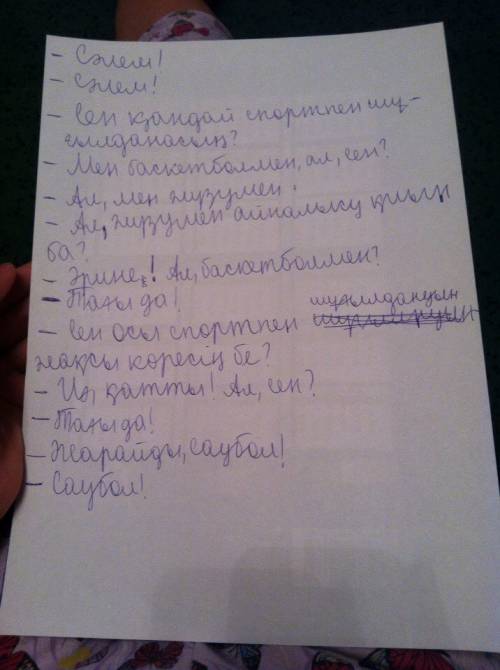 - Сәлем!
- Сәлем!
- Сен қандай спортпен шұ-
ғылданасың?
- Мен баскетболмен, ал, сен?
- Ал, мен жүзумен.
- Ал, жүзумен айналысу қиын
ба?
- Әрине! Ал, баскетболмен?
- Тағы да!
- Сен осы спортпен шұғылдануын
жақсы көресің бе?
- Иә, қатты! Ал, сен?
- Тағы да!
- Жарайды, саубол!
- Саубол!